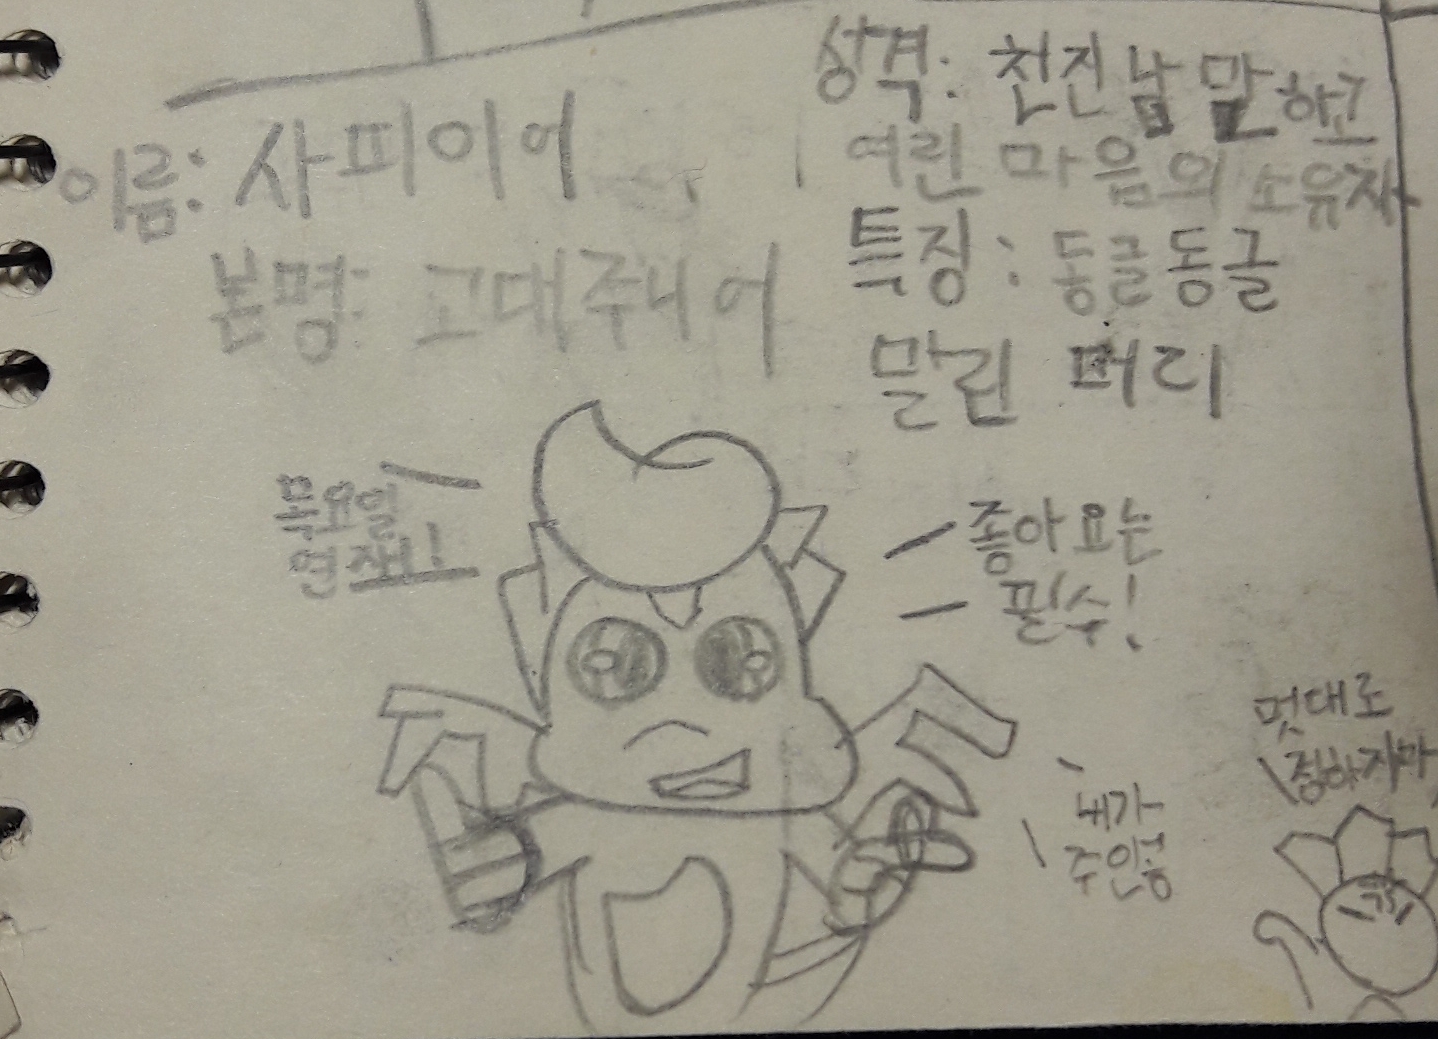 이름: 사피이어
본명: 고대주니어
성격: 천진난만하고
여린 마음의 소유자
특징: 동글동글
말린 머리
목요일
연재!
좋아요는
필수!
내가
주인공
멋대로
정하지마